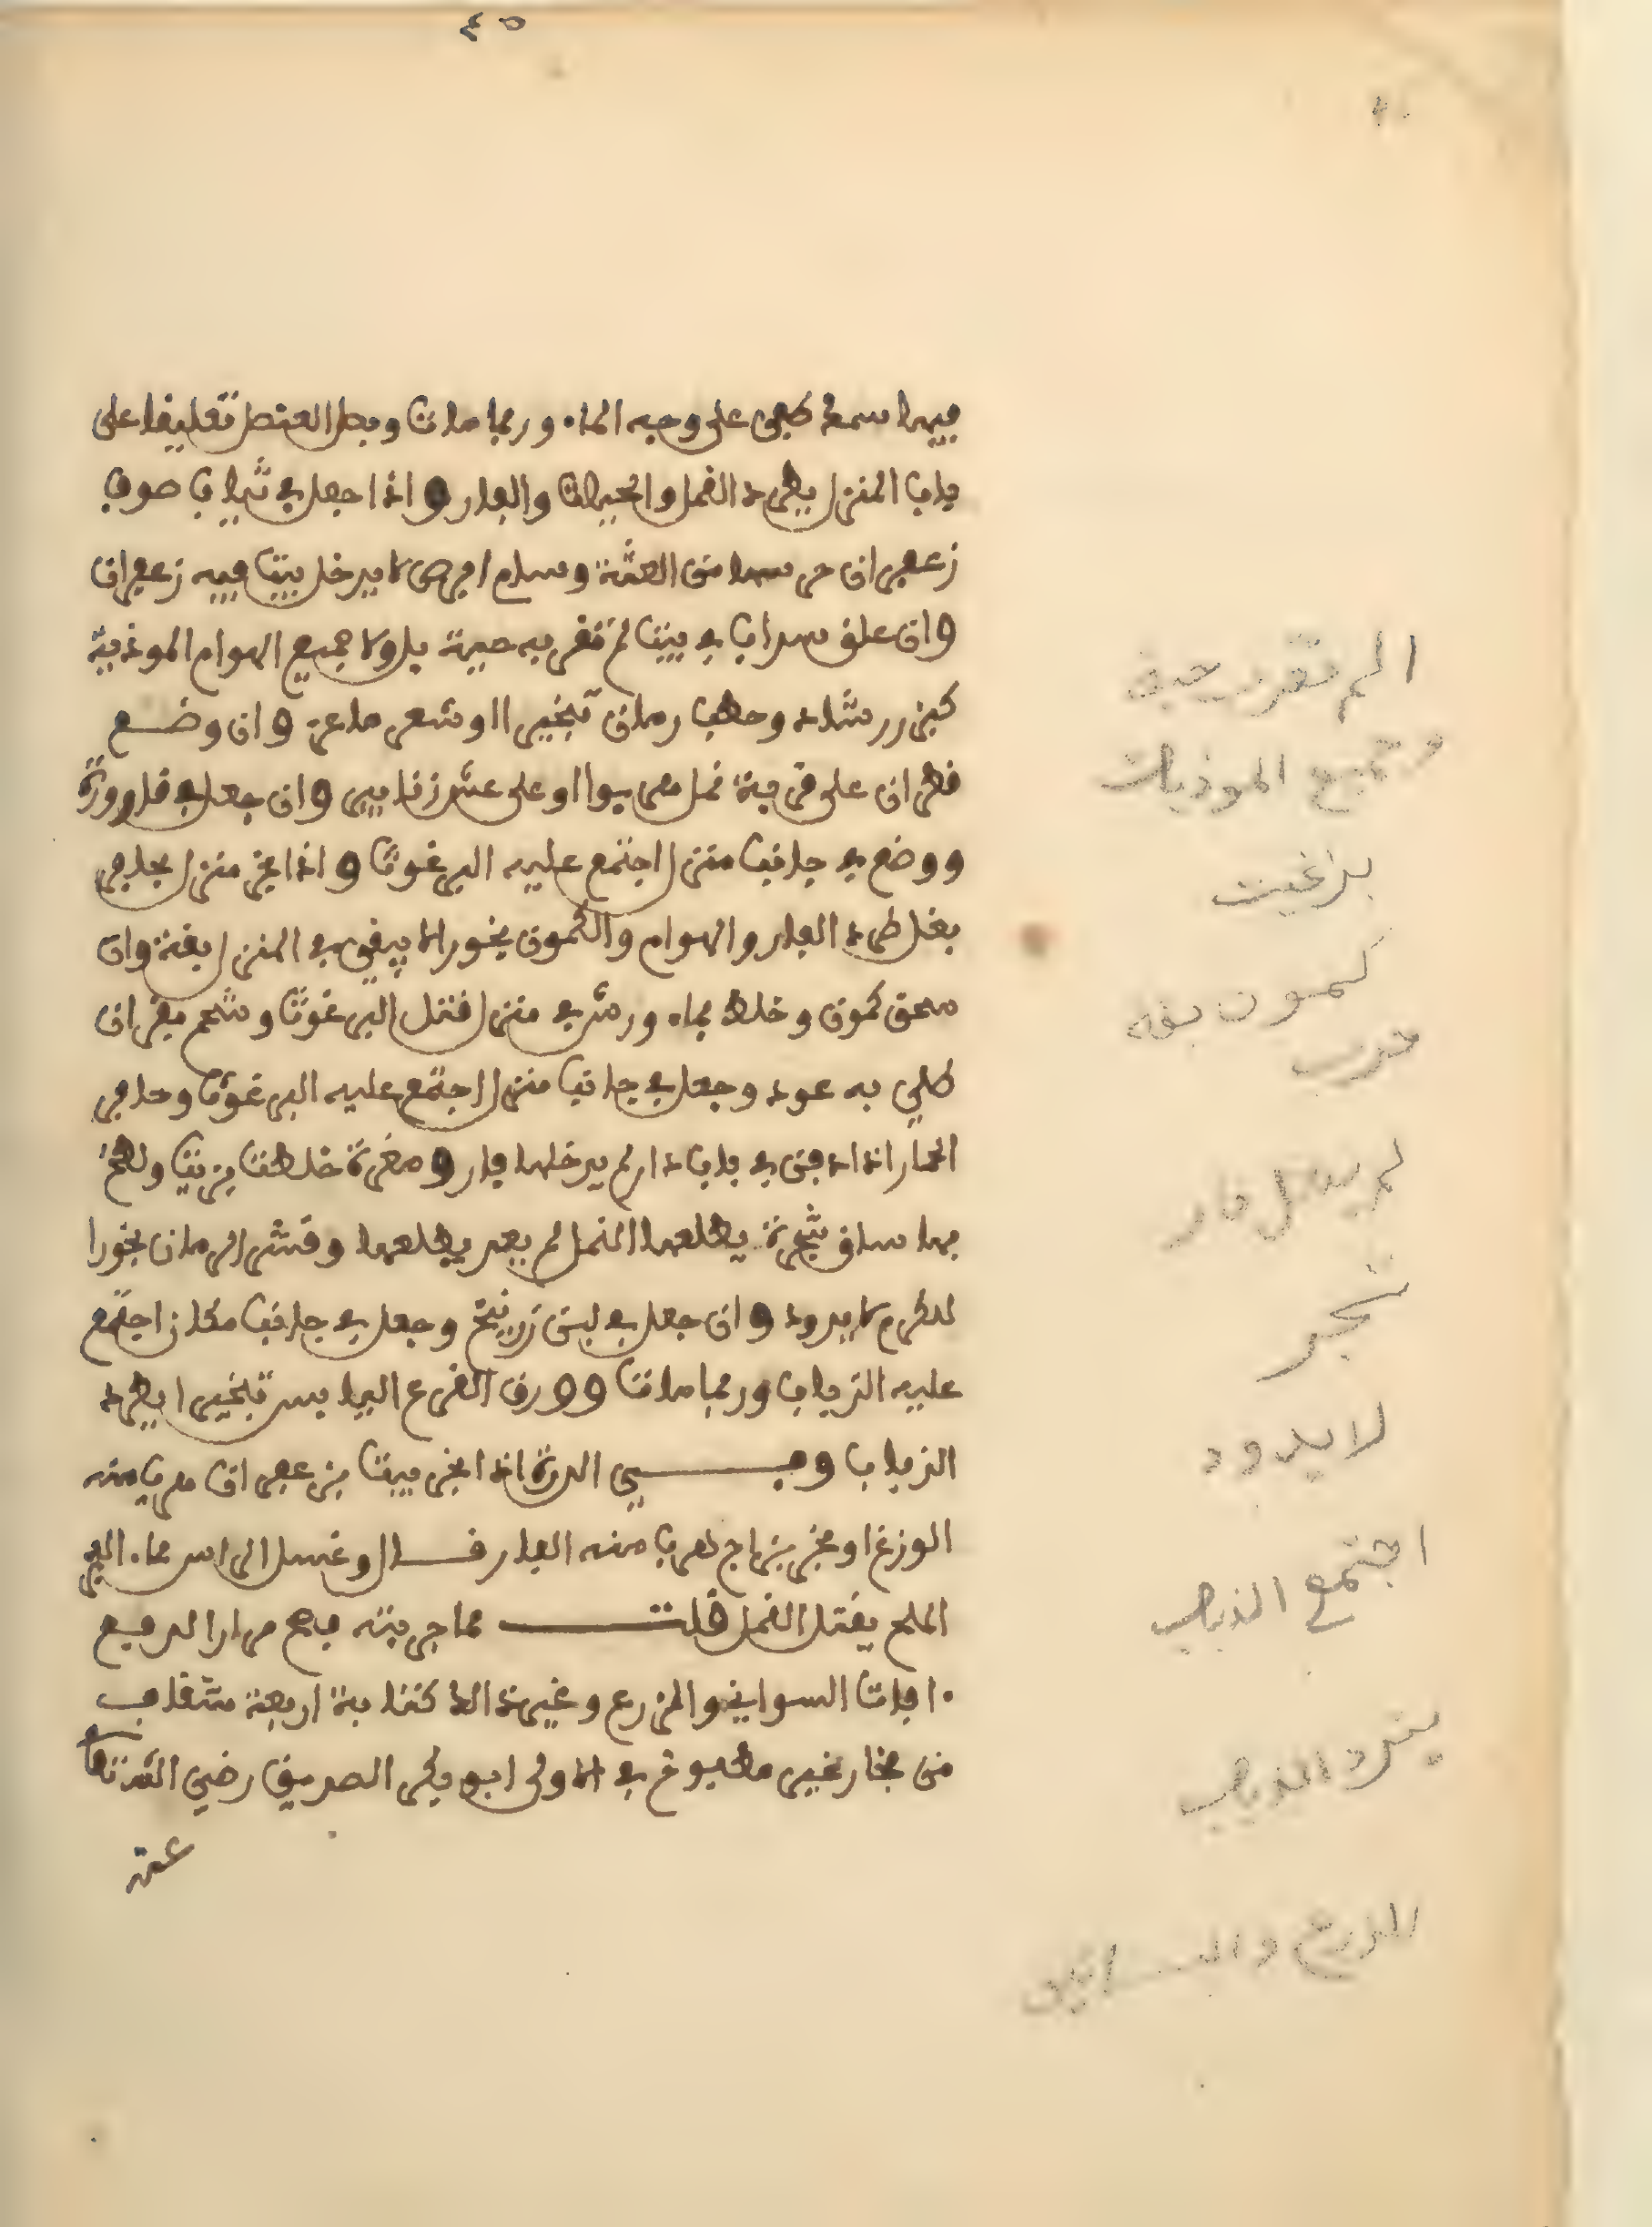 ٤٥
فيها سمك طفى على وجه الماء وربما ماتت وبصل العنصل تعليقا على
باب المنزل يطرد النمل والحيات والفار واذا جعل في ثياب صوف
زعفران حرسها من العثة وسام ابرص لا يدخل بيتا فيه زعفران
وان علق سداب في بيت لم تقربه حية بل ولا جميع الهوام الموذية
كبزر رشاد وحطب رمان تبخيرا او شعر ماعز وان وضع
قطران على قرية نمل هربوا او على عش زنابير وان جعل في قارورة
ووضع في جانب منزل اجتمع عليه البرغوث واذا بخر منزل بحافر
بغل طرد الفار والهوام والكمون بخورا لا يبقى في المنزل بقة وان
سحق كمون وخلط بماء ورش في منزل قتل البرغوث وشحم
طلي به عود وجعل في جانب منزل اجتمع عليه البرغوث وحافر
الحمار اذا دفن في باب دار لم يدخلها فار ومغرة خلطت بزيت ولطخ
بها ساق شجرة يطلعها النمل لم يعد يطلعها وقشر الرمان بخورا
للكرم لا يدود وان جعل في لبن زرنيخ وجعل في جانب مكان اجتمع
عليه الذباب وربما ماتت وورق القرع اليابس تبخيرا يطرد
الذباب وفي الدرة اذا بخر بيت بزعفران هرب منه
الوزغ او بخر بزاج هرب منه الفار قال وغسل الراس بماء
الملح يقتل القمل قلت مما جربته فصح مرارا لدفع
افات السواني والزرع وغير ذالك كتابة اربعة شقاف
من فخار غير مطبوخ في الاولى ابو بكر الصديق رضي الله تعالى
عنه
الم تقرب حية
وجميع الموذيات
براغيث
كمون بقه
لم يدخل فار
شجر
لا يدود
اجتمع الذباب
يطرد الذباب
للزرع والبساتين